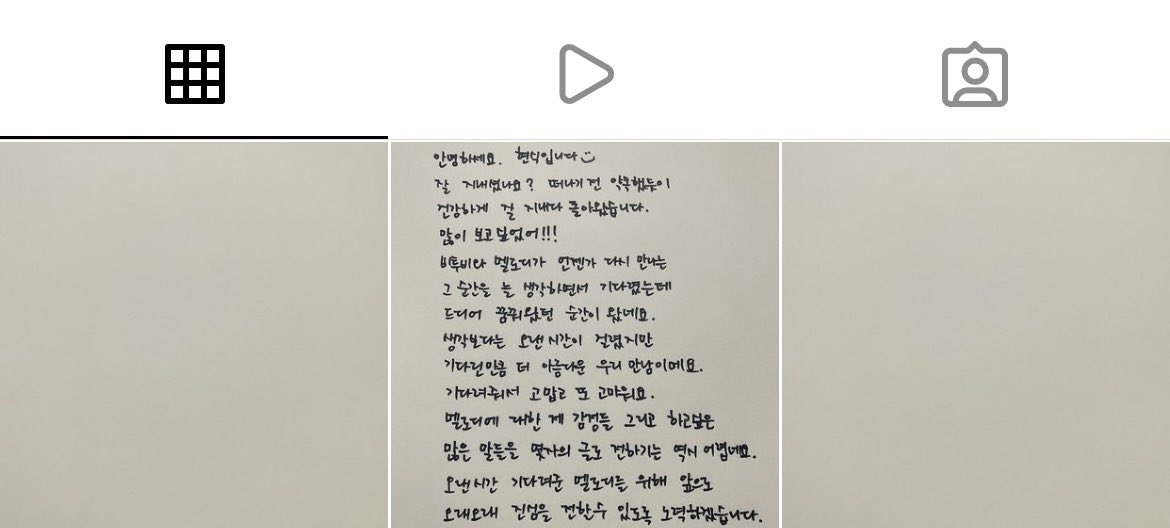 안녕하세요. 현식입니다
잘 지내셨나요? 떠나기 전 약속했듯이
건강하게 잘 지내다 돌아왔습니다.
많이 보고 싶었어!!!
비투비와 멜로디가 언젠가 다시 만나는
그 순간을 늘 생각하면서 기다렸는데
드디어 꿈꿔왔던 순간이 왔네요.
생각보다는 오랜 시간이 걸렸지만
기다린만큼 더 아름다운 우리 만남이에요.
기다려줘서 고맙고 또 고마워요.
멜로디에 대한 제 감정들 그리고 하고싶은
많은 말들을 몇자의 글로 전하기는 역시 어렵네요.
오랜시간 기다려준 멜로디를 위해 앞으로
오래오래 진심을 전할수 있도록 노력하겠습니다.